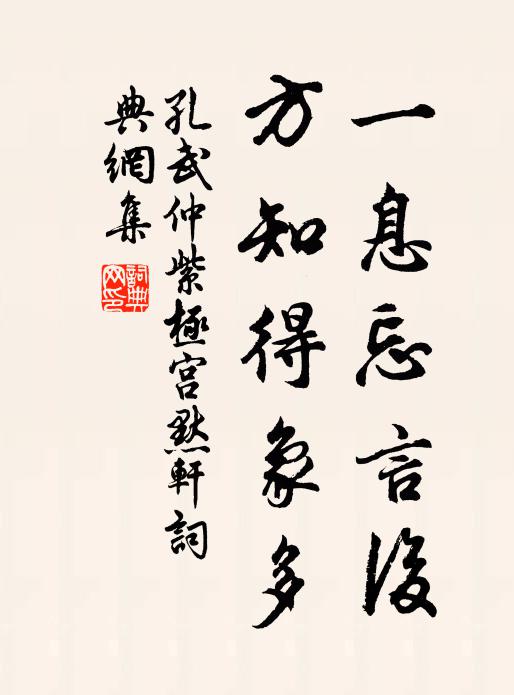 一息忘言後
方知得象多
孔武仲紫極宮默軒詞
典網集
詞典网印